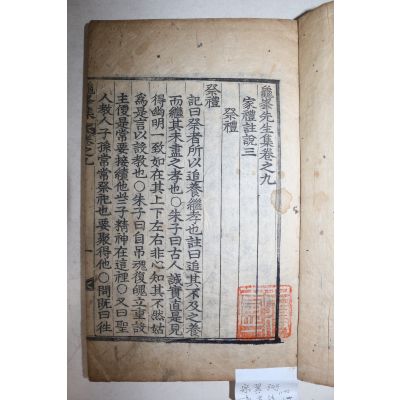 龜峯先生集卷之九
家禮註說三
祭禮
祭禮
記曰祭者所以追養繼孝也註曰追其不及之養
而繼其未盡之孝也○朱子曰古人誠實直是見
得幽明一致如在其上下左右非心知其不然姑
爲是言以設敎也○朱子曰自弔魂復魄立重設
主便是常要接續他些子精神在這裡○又曰聖
人敎人子孫常常祭祀也要聚得他○問旣曰徃
龜峯集
卷之九
一